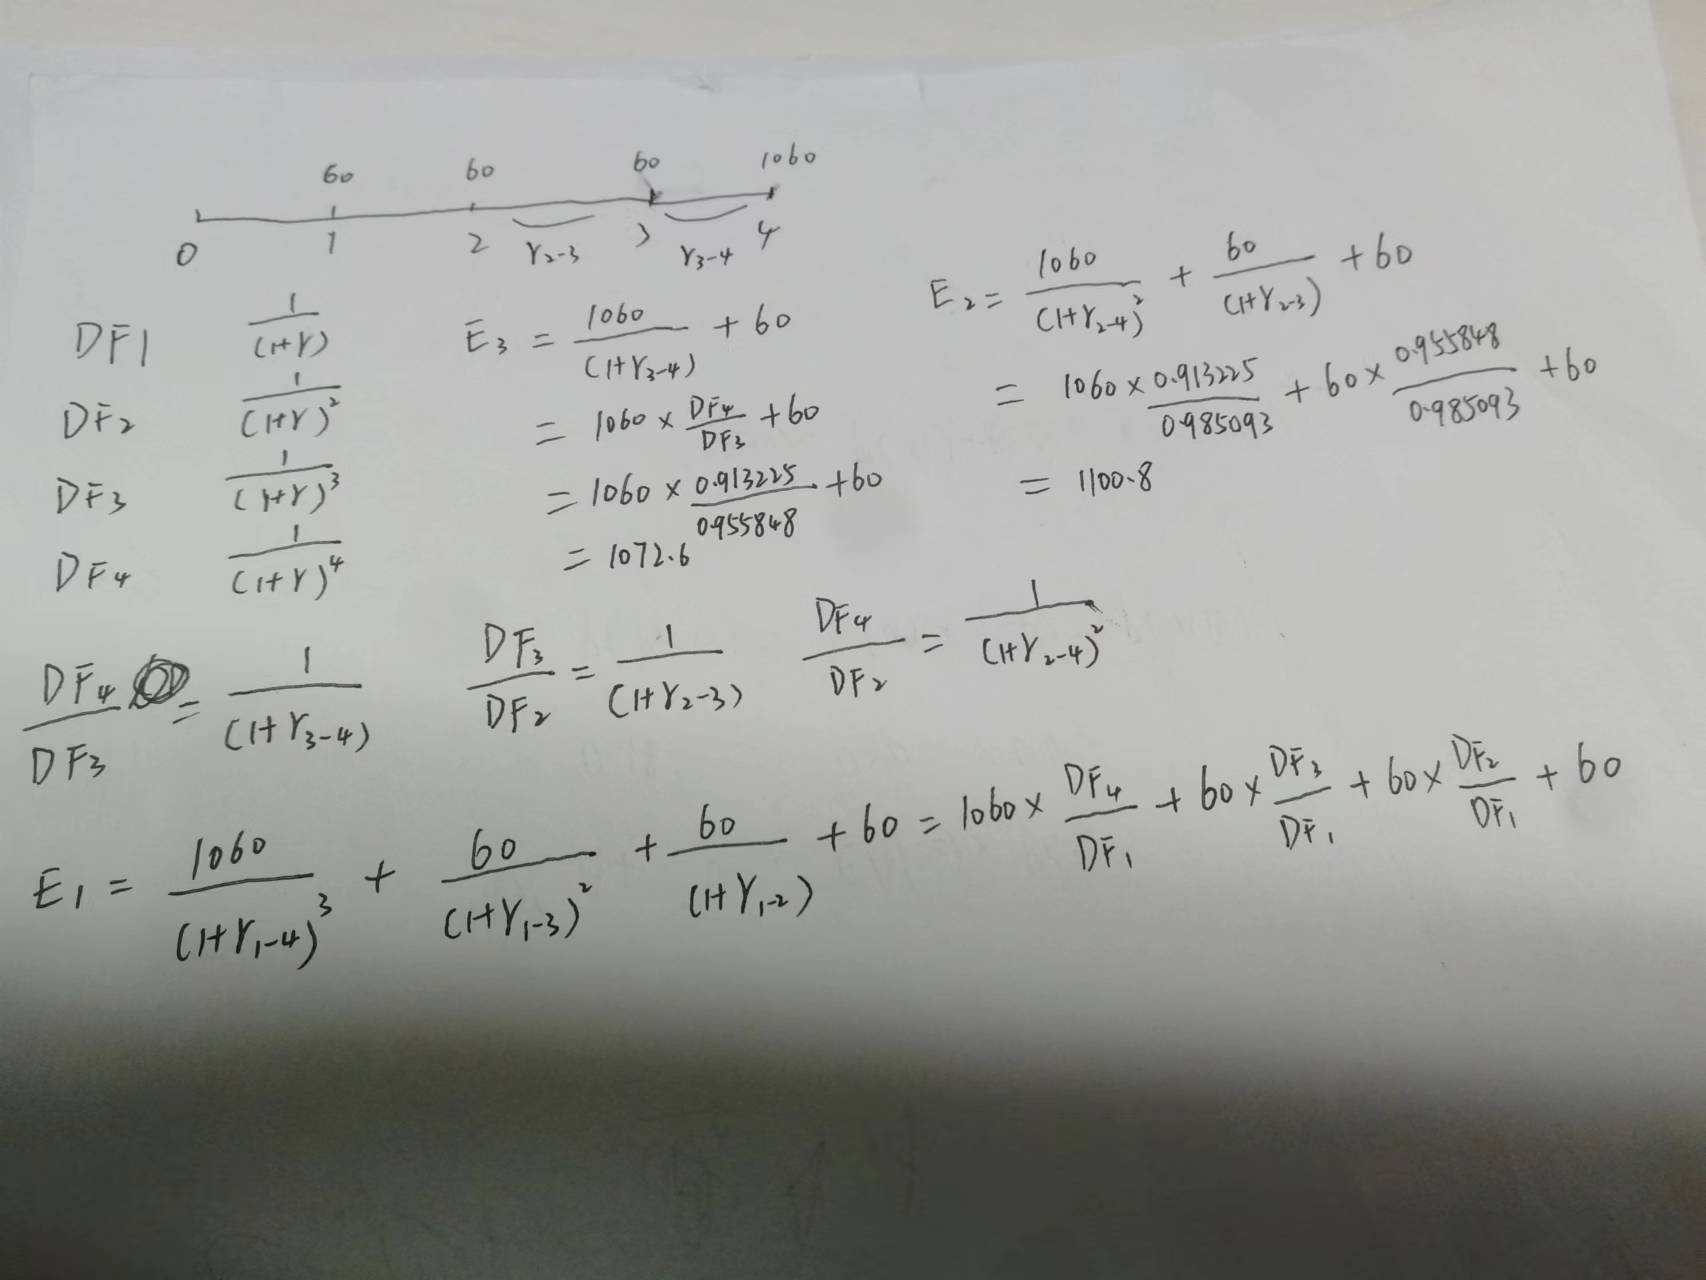 60 60 60 1060
0 1 2 γ₂₋₃ 3 γ₃₋₄ 4
DF1 1/(1+γ)
DF₂ 1/(1+γ)²
DF₃ 1/(1+γ)³
DF₄ 1/(1+γ)⁴
E₃ = 1060/(1+γ₃₋₄) + 60
= 1060 × DF₄/DF₃ + 60
= 1060 × 0.913225/0.955848 + 60
= 1072.6
E₂ = 1060/(1+γ₂₋₄)² + 60/(1+γ₂₋₃) + 60
= 1060 × 0.913225/0.985093 + 60 × 0.955848/0.985093 + 60
= 1100.8
DF₄/DF₃ = 1/(1+γ₃₋₄)
DF₃/DF₂ = 1/(1+γ₂₋₃)
DF₄/DF₂ = 1/(1+γ₂₋₄)²
E₁ = 1060/(1+γ₁₋₄)³ + 60/(1+γ₁₋₃)² + 60/(1+γ₁₋₂) + 60 = 1060 × DF₄/DF₁ + 60 × DF₃/DF₁ + 60 × DF₂/DF₁ + 60